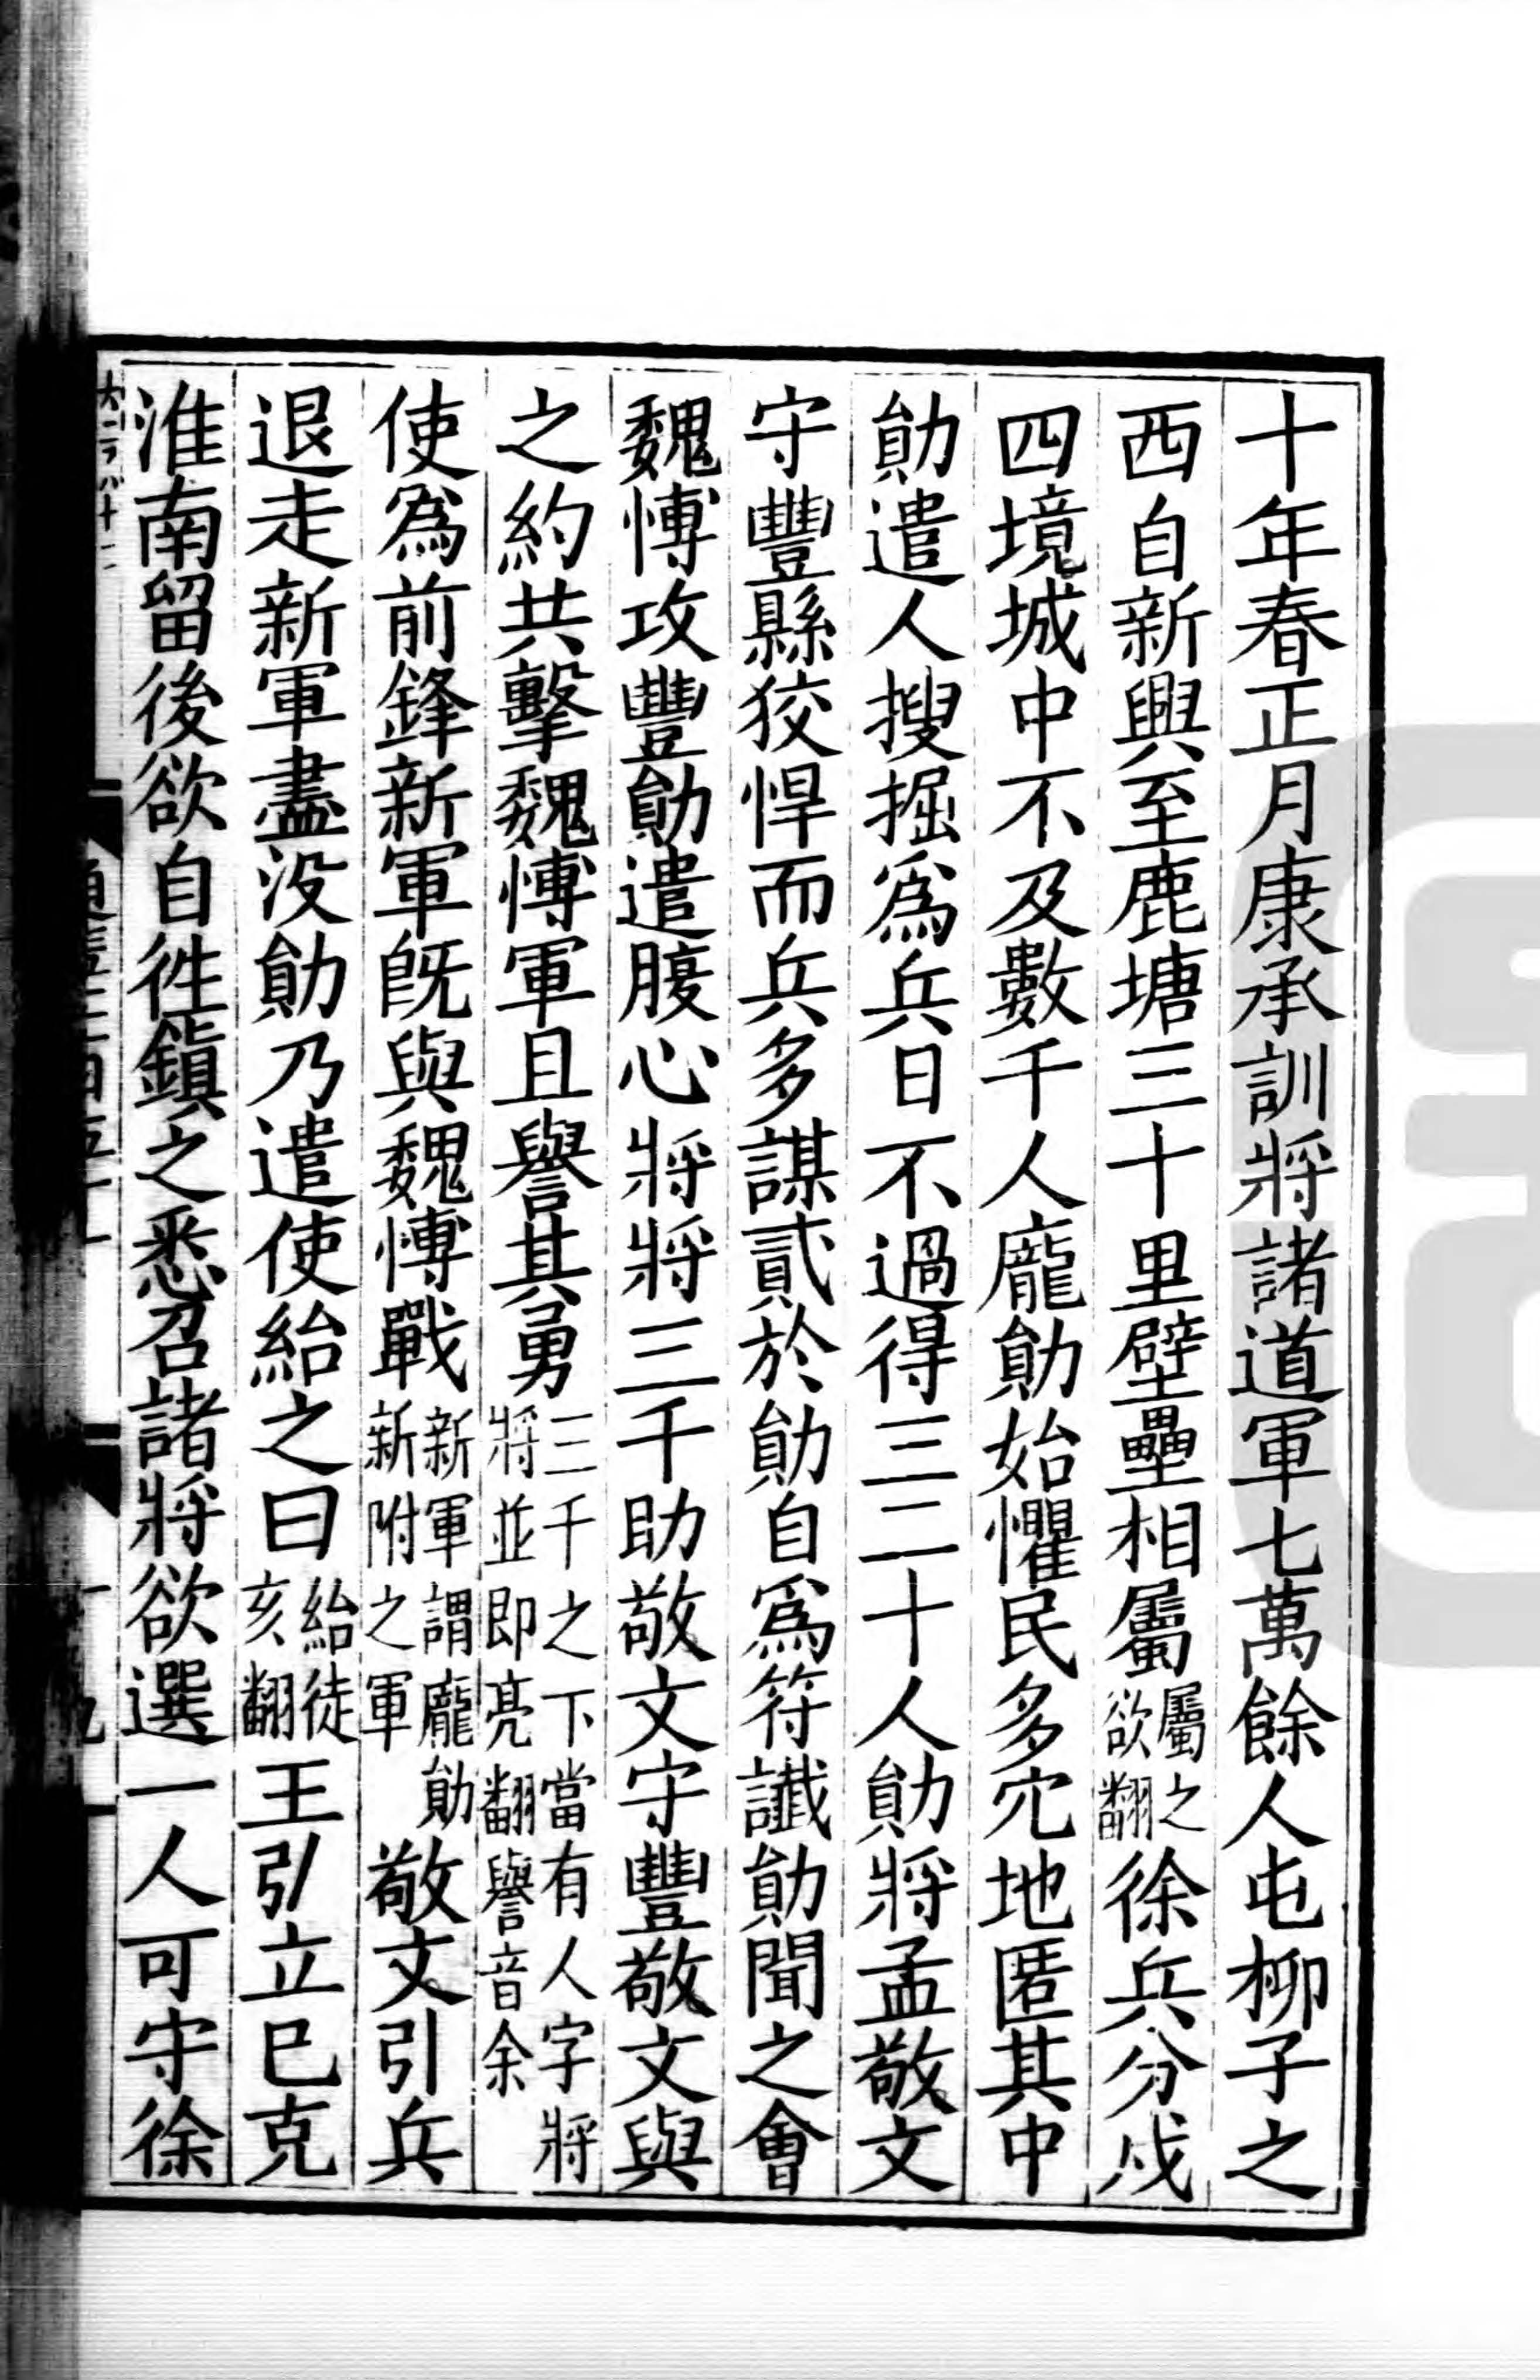 十年春正月康承訓將諸道軍七萬餘人屯柳子之
西自新興至鹿塘三十里壁壘相屬屬之欲翻徐兵分戍
四境城中不及數千人龐勛始懼民多穴地匿其中
勛遣人搜掘爲兵日不過得三二十人勛將孟敬文
守豐縣狡悍而兵多謀貳於勛自爲符讖勛聞之會
魏愽攻豐勛遣腹心將將三千助敬文守豐敬文與
之約共擊魏愽軍且譽其勇三千之下當有人字將將並即亮翻譽音余
使爲前鋒新軍旣與魏愽戰新軍謂龐勛新附之軍敬文引兵
退走新軍盡没勛乃遣使紿之曰紿徒亥翻王引立已克
淮南留後欲自徃鎮之悉召諸將欲選一人可守徐